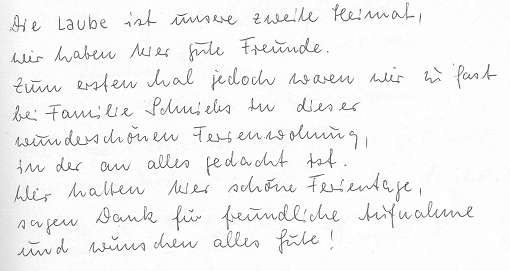 Die Laube ist unsere zweite Heimat,
wir haben hier gute Freunde.
Zum ersten Mal jedoch waren wir zu Gast
bei Familie in dieser
wunderschönen Ferienwohnung,
in der an alles gedacht ist.
Wir hatten hier schöne Ferientage,
sagen Dank für freundliche Aufnahme
und wünschen alles Gute!